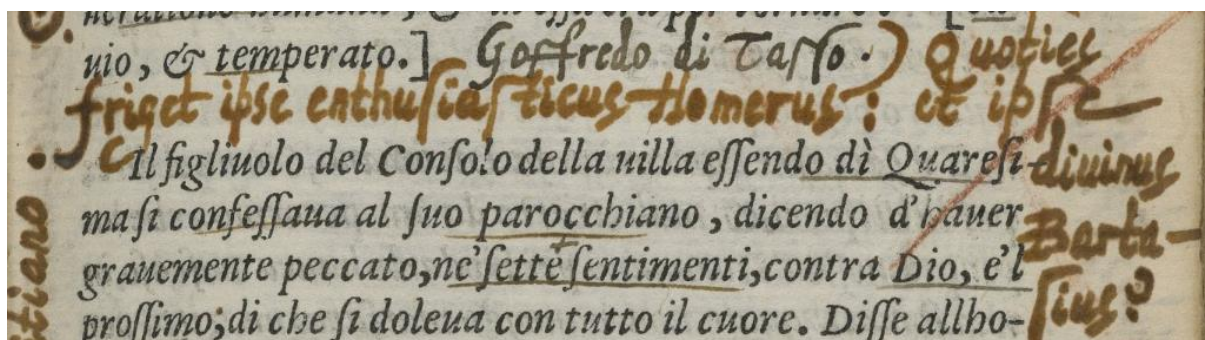 uio, & temperato.] Goffredo di Tasso.) Quoties
friget ipse enthuſiaſticus Homerus: et ipſe
Il figliuolo del Conſolo della uilla eſſendo dì Quareſi-
diuinus
ma ſi confeſſaua al ſuo parocchiano, dicendo d'hauer
Barta-
grauemente peccato, ne' ſette ſentimenti, contra Dio, e'l
ſius?
proſſimo; di che ſi doleua con tutto il cuore. Diſſe allho-